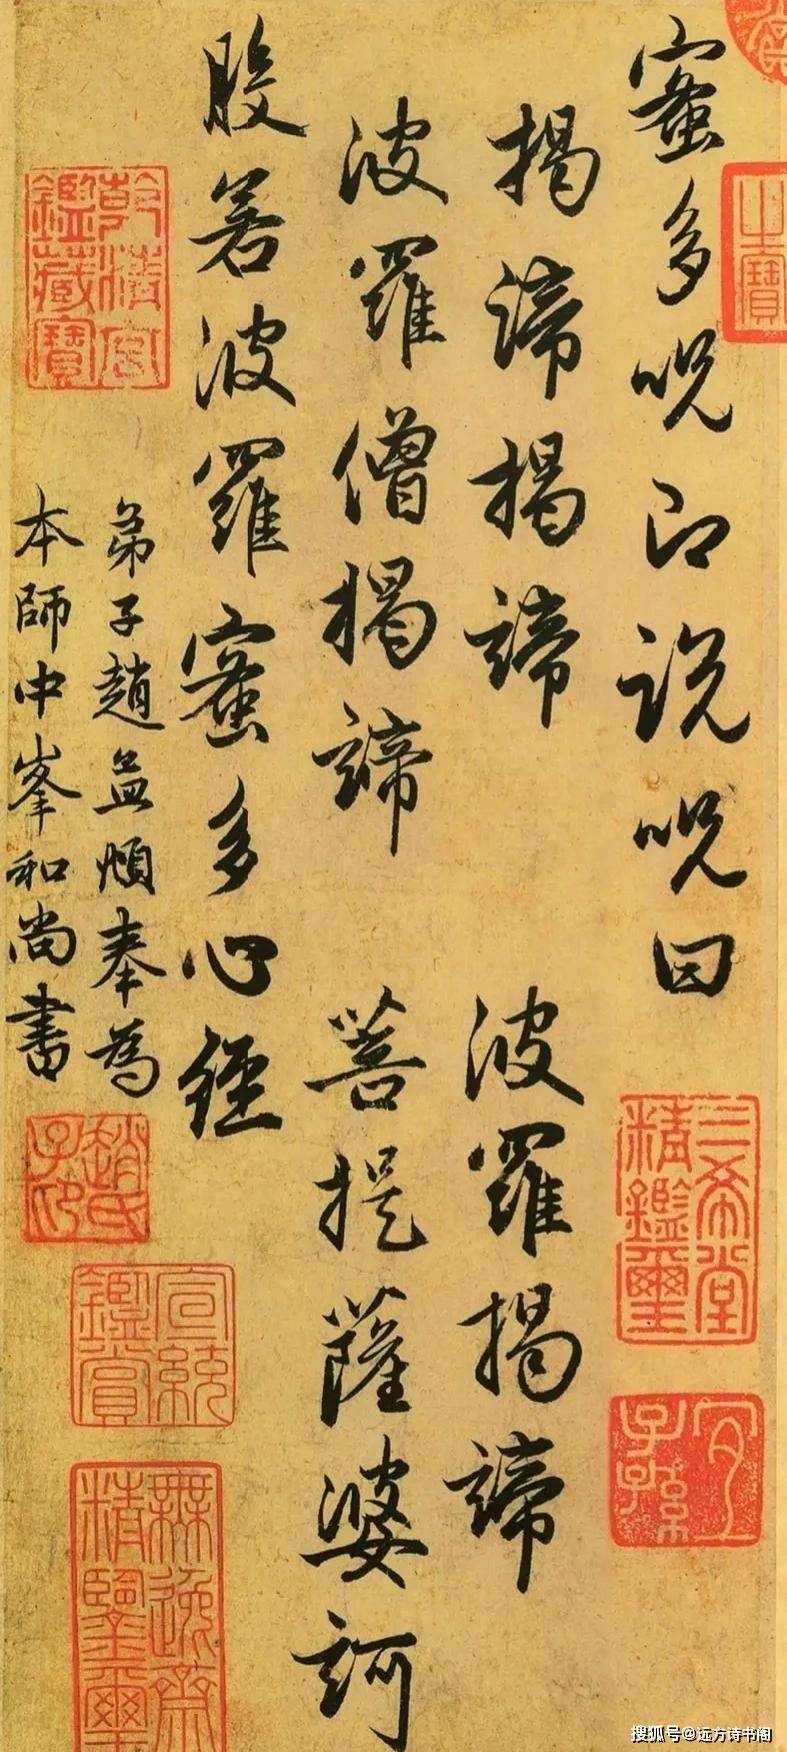 蜜多呪即說呪曰
揭諦揭諦 波羅揭諦
波羅僧揭諦 菩提薩婆訶
般若波羅蜜多心經
弟子趙孟頫奉為
本師中峯和尚書
之寶
三希堂精鑑璽
宜子孫
乾清宮鑑藏寶
趙氏子印
宣統鑑賞
無逸齋精鑒璽
搜狐号@远方诗书阁